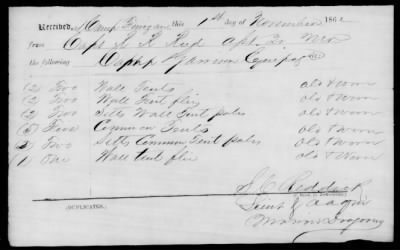 Received, at Camp this 1st day of November 186
from Capt Qr Mr
the following Camp & Garrison Equipage
(2) Two Wall Tents old & worn
(2) Two Wall Tent flies old & worn
(2) Two Setts Wall Tent poles old & worn
(5) Five Common Tents old & worn
Setts Common Tent poles old & worn
(1) One Wall tent flie old & worn
S. C.
Lieut & a a qm
(DUPLICATES.)